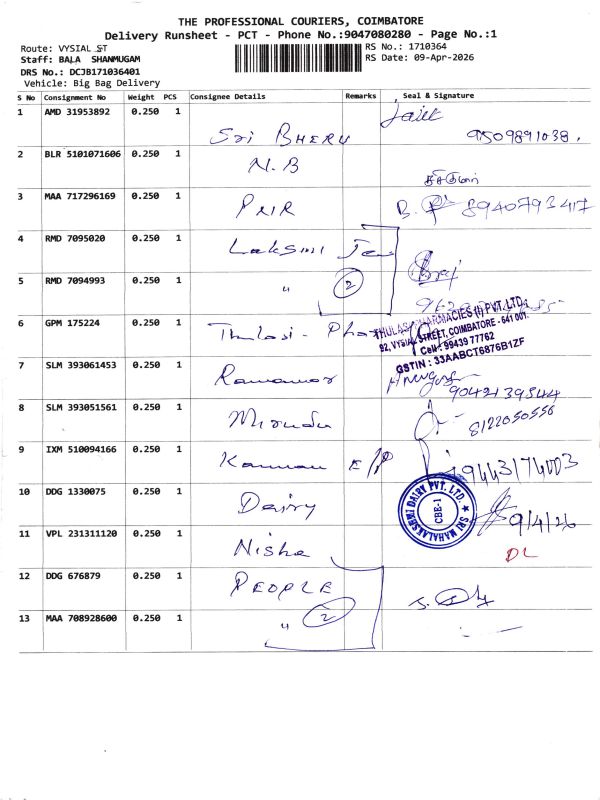 THE PROFESSIONAL COURIERS, COIMBATORE
Delivery Runsheet - PCT - Phone No.:9047080280 - Page No.:1
Route: VYSIAL ST
RS No.: 1710364
Staff: BALA SHANMUGAM
RS Date: 09-Apr-2026
DRS No.: DCJB171036401
Vehicle: Big Bag Delivery
S No Consignment No Weight PCS Consignee Details Remarks Seal & Signature
1 AMD 31953892 0.250 1 Sri BHERU 9509891038.
2 BLR 5101071606 0.250 1 N.B
3 MAA 717296169 0.250 1 PNIR B. 8940793417
4 RMD 7095020 0.250 1 Laksmi
5 RMD 7094993 0.250 1 " 2
6 GPM 175224 0.250 1 Thulasi - Pha
THULASI PHARMACIES (I) PVT. LTD.
92, VYSIAL STREET, COIMBATORE - 641 001.
Cell : 99439 77762
GSTIN : 33AABCT6876B1ZF
7 SLM 393061453 0.250 1 9042139544
8 SLM 393051561 0.250 1 8122050556
9 IXM 510094166 0.250 1 Kannan E/P 9443174003
10 DDG 1330075 0.250 1 Dairy
SRI MAHALAKSHMI DAIRY PVT. LTD.
CBE-1
9/4/26
11 VPL 231311120 0.250 1 Nisha DL
12 DDG 676879 0.250 1 PEOPLE
13 MAA 708928600 0.250 1 " 2